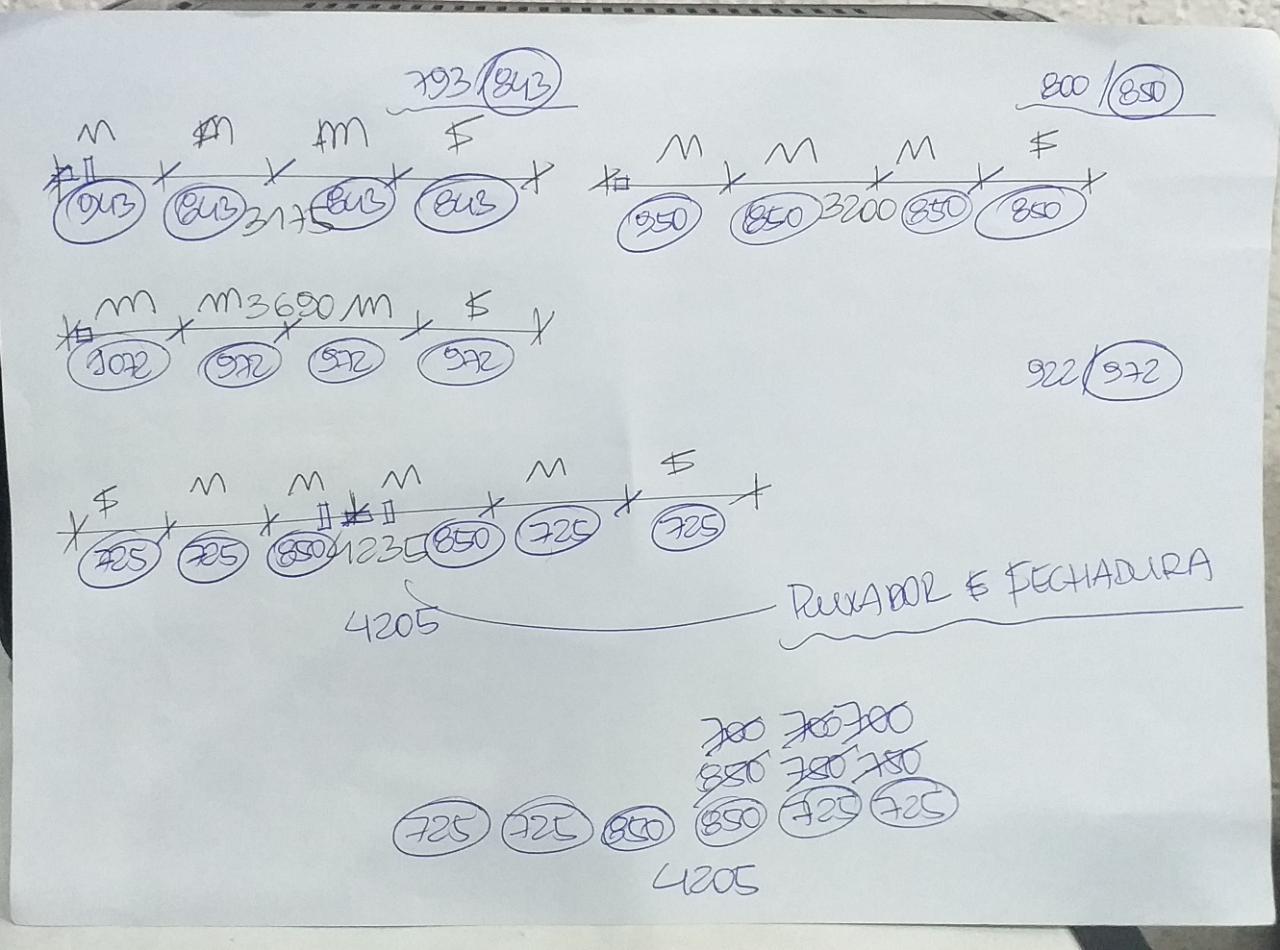 793/843
800/850
M M M F
M M M F
943 843 3175 843 843
950 850 3200 850 850
M M 3690 M F
1072 972 972 972
922/972
F M M M M F
725 725 850 4235 850 725 725
PUXADOR E FECHADURA
4205
700 700 700
850 750 750
725 725 850 850 725 725
4205